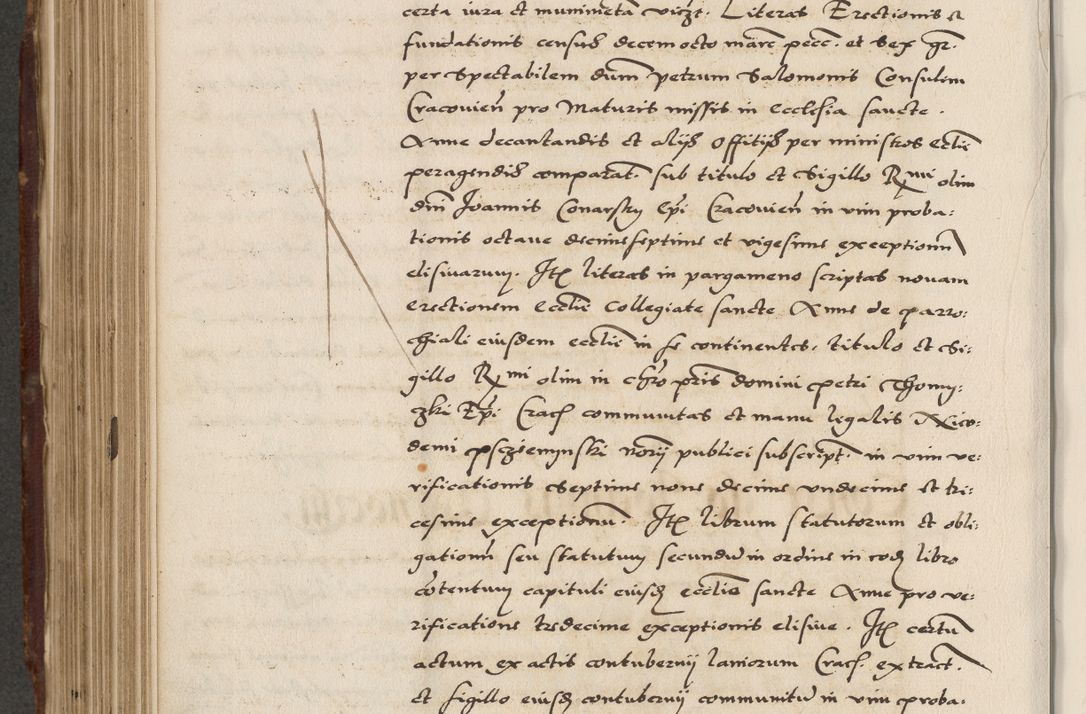 certa iura et munimeta vidzt. Literas Erectionis et
fundationis census decem octo marc pecc. et sex gr.
per spectabilem dnm petrum Salomonis Consulem
Cracovien pro Maturis missis in ecclesia sancte
Anne decantandis et alijs offitijs per ministros ecclie
peragendis comparat. sub titulo et Sigillo Rmi olim
dni Joannis Conarsky Epi Cracovien in vim proba:
tionis octave decimeseptime et vigesime exceptionu
elisivarum. Ite literas in pargameno scriptas novam
erectionem Ecclie Collegiate sancte Anne de parro:
chiali eiusdem ecclie in se continentes, titulo et Si:
gillo Rmi olim in chro pris domini petri Thomy:
zki Epi Crac communitas et manu legalis Nico:
demi psczieminski norij publici subscript. in vim ve:
rificationis Septime none decime undecime et tri:
cesime exceptionu. Ite librum statutorum et obli:
gationu seu statutum secundu in ordine in eod libro
cotentum capituli eiusd ecclie sancte Anne pro ve:
rificatione tredecime exceptionis elisive. Ite certu
actum ex actis contubernij laniorum Crac. extract.
et sigillo eiusd contubernij communitu in vim proba: